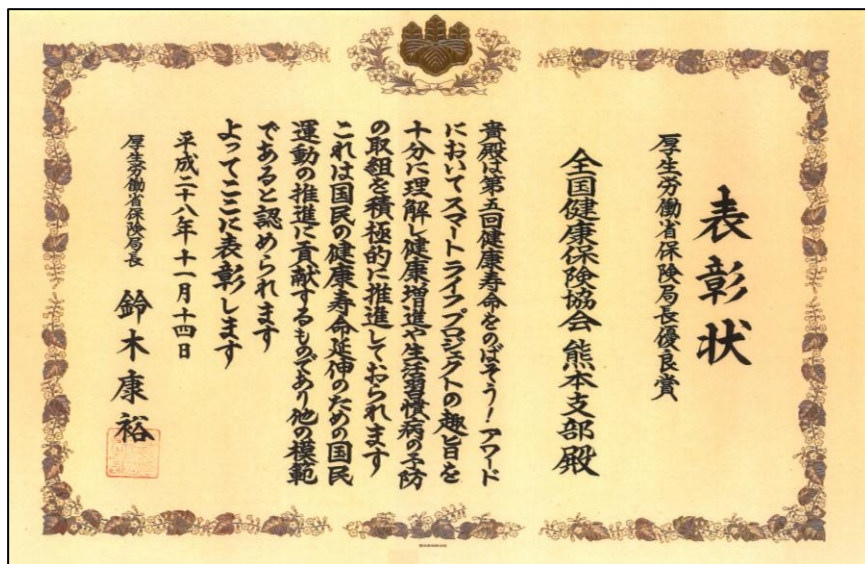 表彰状
厚生労働省保険局長優良賞
全国健康保険協会 熊本支部殿
貴殿は第五回健康寿命をのばそう！アワード
においてスマートライフプロジェクトの趣旨を
十分に理解し健康増進や生活習慣病の予防
の取組を積極的に推進しておられます
これは国民の健康寿命延伸のための国民
運動の推進に貢献するものであり他の模範
であると認められます
よってここに表彰します
平成二十八年十一月十四日
厚生労働省保険局長 鈴木康裕